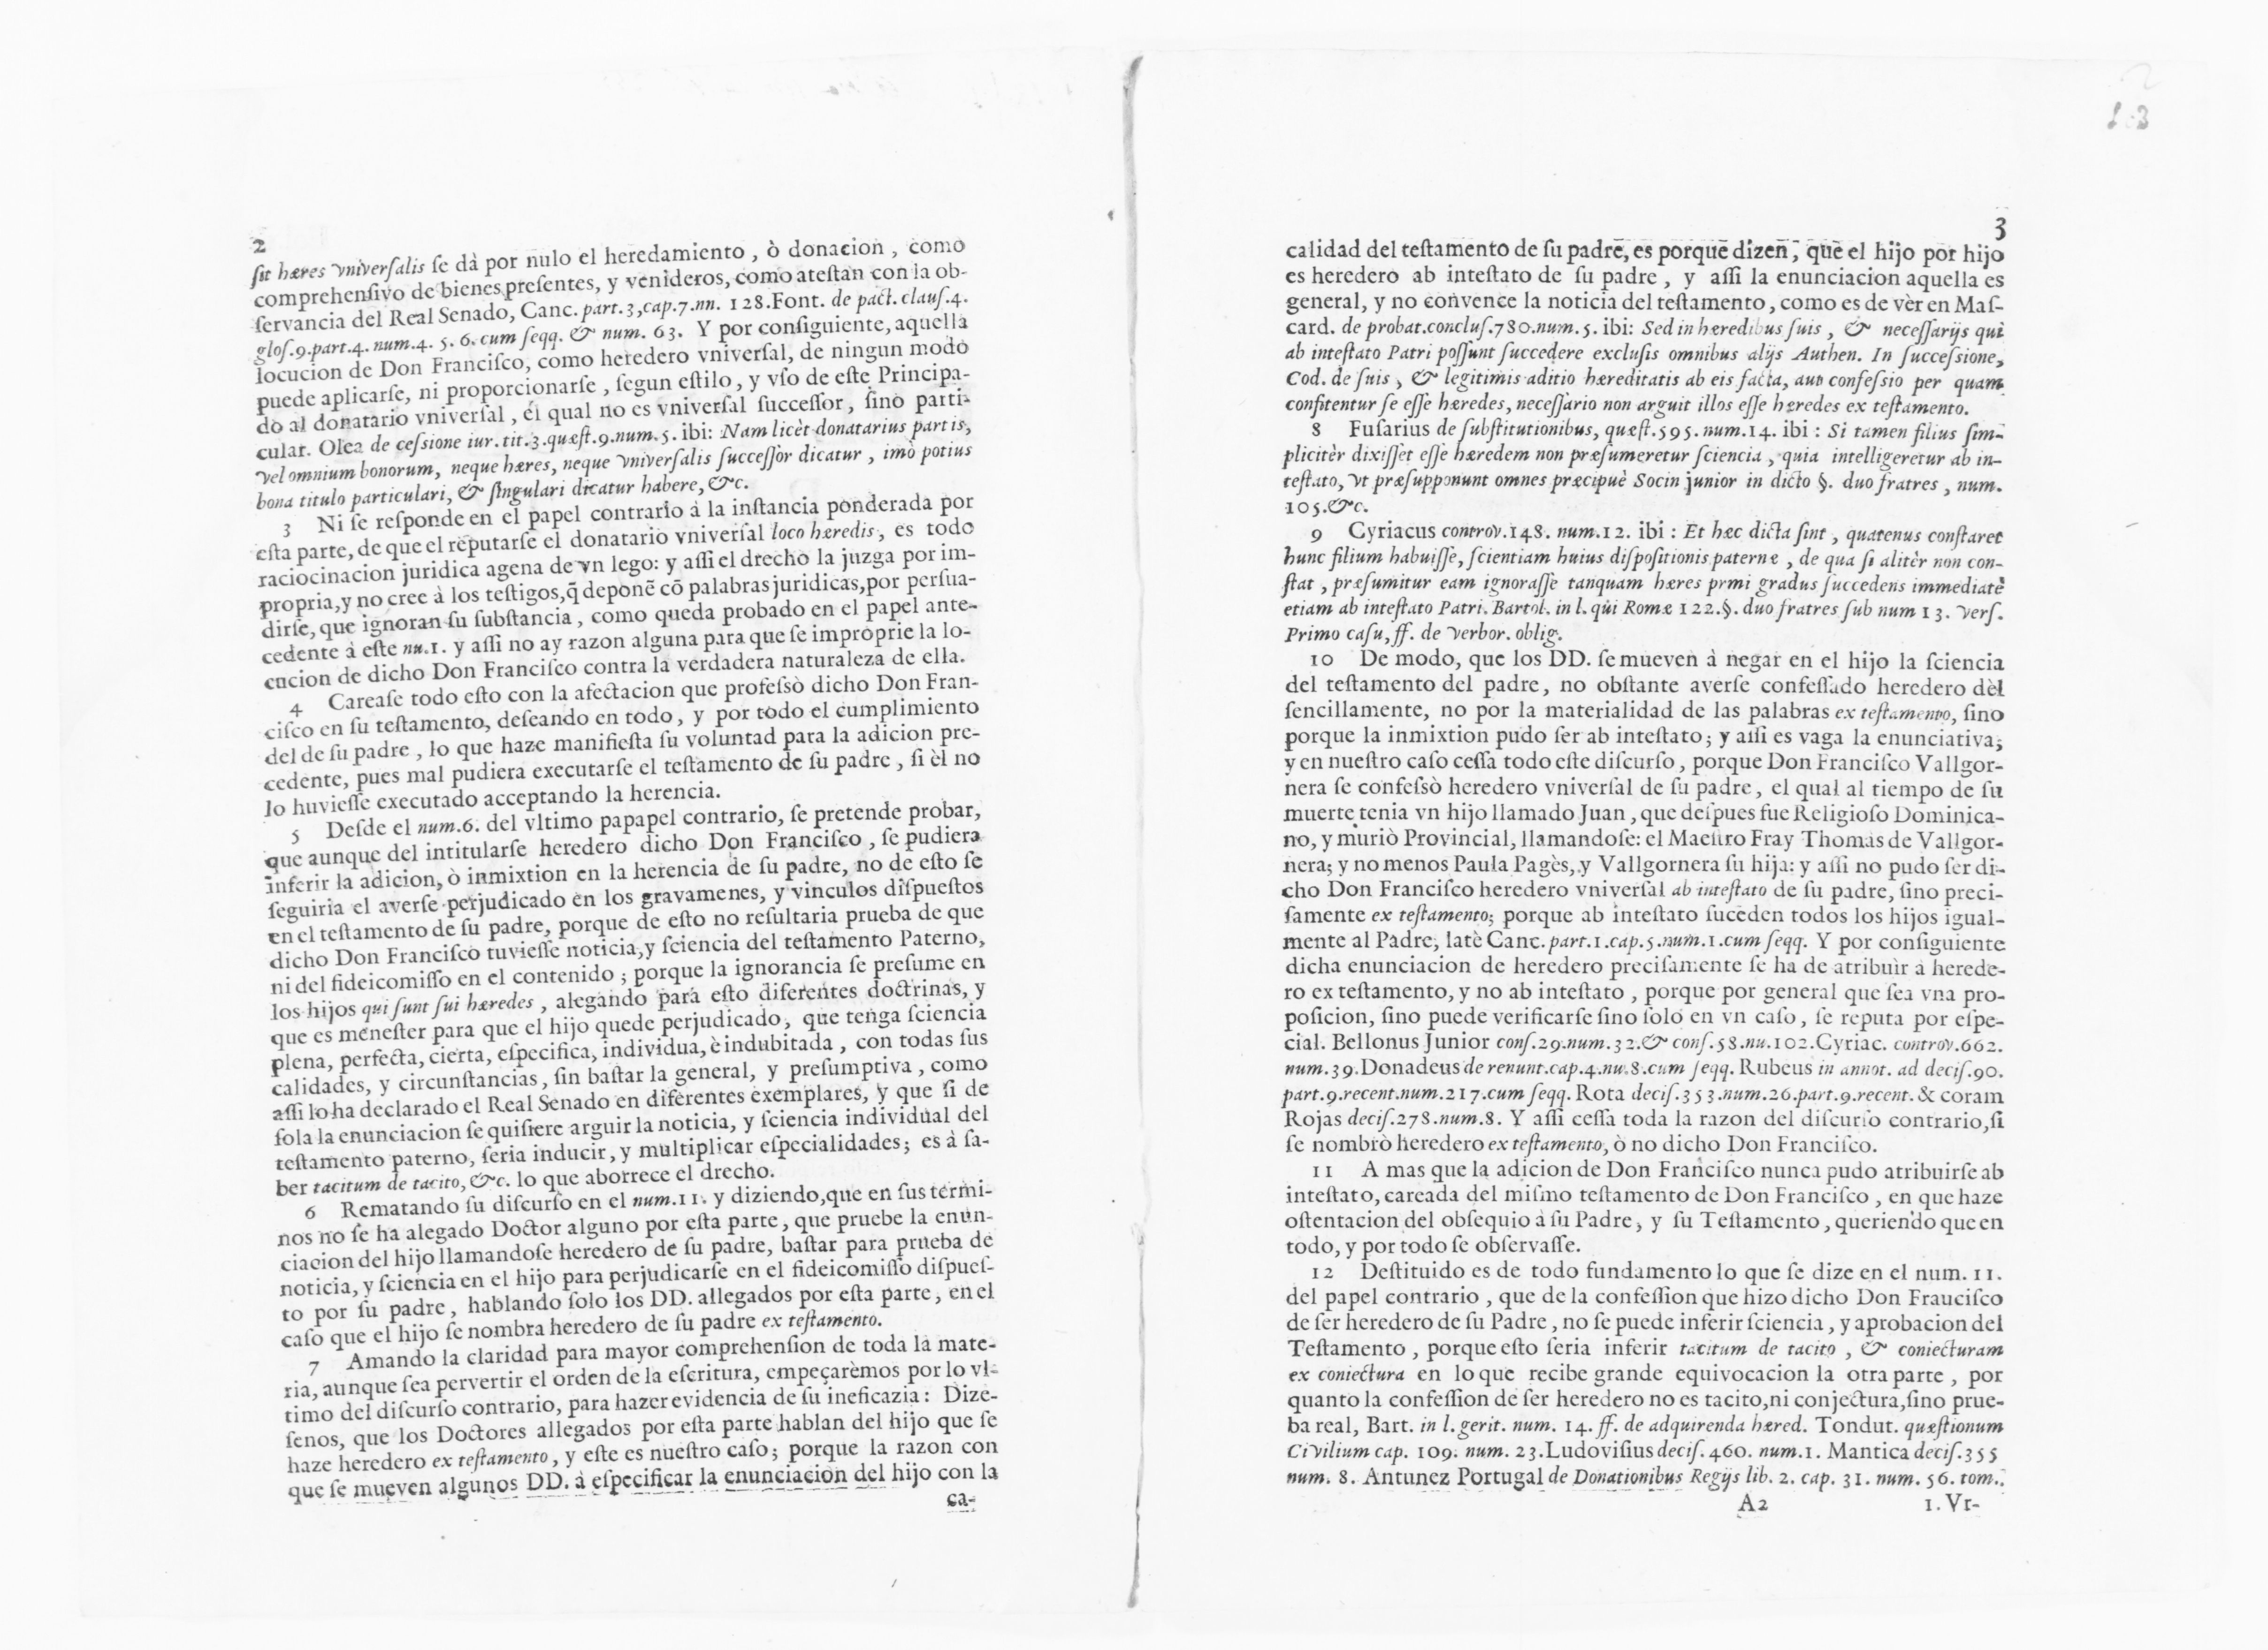 2
ſit hæres vniverſalis ſe dà por nulo el heredamiento, ò donacion, como
comprehenſivo de bienes preſentes, y venideros, como ateſtan con la ob-
ſervancia del Real Senado, Canc. part.3, cap.7. nn. 128. Font. de pact. clauſ.4.
gloſ.9. part.4. num.4. 5. 6. cum ſeqq. & num. 63. Y por conſiguiente, aquella
locucion de Don Franciſco, como heredero vniverſal, de ningun modo
puede aplicarſe, ni proporcionarſe, ſegun eſtilo, y vſo de eſte Principa-
do al donatario vniverſal, el qual no es vniverſal ſucceſſor, ſino parti-
cular. Olea de ceſsione iur. tit.3. quæſt.9. num.5. ibi: Nam licèt donatarius partis,
vel omnium bonorum, neque hæres, neque vniverſalis ſucceſſor dicatur, imò potius
bona titulo particulari, & ſingulari dicatur habere, &c.
3 Ni ſe reſponde en el papel contrario à la inſtancia ponderada por
eſta parte, de que el reputarſe el donatario vniverſal loco hæredis, es todo
raciocinacion juridica agena de vn lego: y aſſi el drecho la juzga por im-
propria, y no cree à los teſtigos, q̃ deponẽ cõ palabras juridicas, por perſua-
dirſe, que ignoran ſu ſubſtancia, como queda probado en el papel ante-
cedente à eſte nu.1. y aſſi no ay razon alguna para que ſe improprie la lo-
cucion de dicho Don Franciſco contra la verdadera naturaleza de ella.
4 Careaſe todo eſto con la afectacion que profeſsò dicho Don Fran-
ciſco en ſu teſtamento, deſeando en todo, y por todo el cumplimiento
del de ſu padre, lo que haze manifieſta ſu voluntad para la adicion pre-
cedente, pues mal pudiera executarſe el teſtamento de ſu padre, ſi èl no
lo huvieſſe executado acceptando la herencia.
5 Deſde el num.6. del vltimo papapel contrario, ſe pretende probar,
que aunque del intitularſe heredero dicho Don Franciſco, ſe pudiera
inferir la adicion, ò inmixtion en la herencia de ſu padre, no de eſto ſe
ſeguiria el averſe perjudicado en los gravamenes, y vinculos diſpueſtos
en el teſtamento de ſu padre, porque de eſto no reſultaria prueba de que
dicho Don Franciſco tuvieſſe noticia, y ſciencia del teſtamento Paterno,
ni del fideicomiſſo en el contenido; porque la ignorancia ſe preſume en
los hijos qui ſunt ſui hæredes, alegando para eſto diferentes doctrinas, y
que es meneſter para que el hijo quede perjudicado, que tenga ſciencia
plena, perfecta, cierta, eſpecifica, individua, è indubitada, con todas ſus
calidades, y circunſtancias, ſin baſtar la general, y preſumptiva, como
aſſi lo ha declarado el Real Senado en diferentes exemplares, y que ſi de
ſola la enunciacion ſe quiſiere arguir la noticia, y ſciencia individual del
teſtamento paterno, ſeria inducir, y multiplicar eſpecialidades; es à ſa-
ber tacitum de tacito, &c. lo que aborrece el drecho.
6 Rematando ſu diſcurſo en el num.11. y diziendo, que en ſus termi-
nos no ſe ha alegado Doctor alguno por eſta parte, que pruebe la enun-
ciacion del hijo llamandoſe heredero de ſu padre, baſtar para prueba de
noticia, y ſciencia en el hijo para perjudicarſe en el fideicomiſſo diſpueſ-
to por ſu padre, hablando ſolo los DD. allegados por eſta parte, en el
caſo que el hijo ſe nombra heredero de ſu padre ex teſtamento.
7 Amando la claridad para mayor comprehenſion de toda la mate-
ria, aunque ſea pervertir el orden de la eſcritura, empeçarèmos por lo vl-
timo del diſcurſo contrario, para hazer evidencia de ſu ineficazia: Dize-
ſenos, que los Doctores allegados por eſta parte hablan del hijo que ſe
haze heredero ex teſtamento, y eſte es nueſtro caſo; porque la razon con
que ſe mueven algunos DD. à eſpecificar la enunciacion del hijo con la
ca-
3
calidad del teſtamento de ſu padre, es porque dizen, que el hijo por hijo
es heredero ab inteſtato de ſu padre, y aſſi la enunciacion aquella es
general, y no convence la noticia del teſtamento, como es de vèr en Maſ-
card. de probat. concluſ.780. num. 5. ibi: Sed in hæredibus ſuis, & neceſſarijs qui
ab inteſtato Patri poſſunt ſuccedere excluſis omnibus alijs Authen. In ſucceſsione,
Cod. de ſuis, & legitimis aditio hæreditatis ab eis facta, aut confeſsio per quam
confitentur ſe eſſe hæredes, neceſſario non arguit illos eſſe hæredes ex teſtamento.
8 Fuſarius de ſubſtitutionibus, quæſt.595. num.14. ibi: Si tamen filius ſim-
plicitèr dixiſſet eſſe hæredem non præſumeretur ſciencia, quia intelligeretur ab in-
teſtato, vt præſupponunt omnes præcipuè Socin junior in dicto §. duo fratres, num.
105. &c.
9 Cyriacus controv.148. num.12. ibi: Et hæc dicta ſint, quatenus conſtaret
hunc filium habuiſſe, ſcientiam huius diſpoſitionis paternæ, de qua ſi alitèr non con-
ſtat, præſumitur eam ignoraſſe tanquam hæres prmi gradus ſuccedens immediatè
etiam ab inteſtato Patri. Bartol. in l. qui Romæ 122. §. duo fratres ſub num 13. verſ.
Primo caſu, ff. de verbor. oblig.
10 De modo, que los DD. ſe mueven à negar en el hijo la ſciencia
del teſtamento del padre, no obſtante averſe confeſſado heredero dèl
ſencillamente, no por la materialidad de las palabras ex teſtamento, ſino
porque la inmixtion pudo ſer ab inteſtato; y aſſi es vaga la enunciativa;
y en nueſtro caſo ceſſa todo eſte diſcurſo, porque Don Franciſco Vallgor-
nera ſe confeſsò heredero vniverſal de ſu padre, el qual al tiempo de ſu
muerte tenia vn hijo llamado Juan, que deſpues fue Religioſo Dominica-
no, y muriò Provincial, llamandoſe: el Maeſtro Fray Thomas de Vallgor-
nera; y no menos Paula Pagès, y Vallgornera ſu hija: y aſſi no pudo ſer di-
cho Don Franciſco heredero vniverſal ab inteſtato de ſu padre, ſino preci-
ſamente ex teſtamento; porque ab inteſtato ſuceden todos los hijos igual-
mente al Padre, latè Canc. part.1. cap.5. num.1. cum ſeqq. Y por conſiguiente
dicha enunciacion de heredero preciſamente ſe ha de atribuir à herede-
ro ex teſtamento, y no ab inteſtato, porque por general que ſea vna pro-
poſicion, ſino puede verificarſe ſino ſolo en vn caſo, ſe reputa por eſpe-
cial. Bellonus Junior conſ.29. num.32. & conſ.58. nu.102. Cyriac. controv.662.
num.39. Donadeus de renunt. cap.4. nu.8. cum ſeqq. Rubeus in annot. ad deciſ.90.
part.9. recent. num.217. cum ſeqq. Rota deciſ.353. num.26. part.9. recent. & coram
Rojas deciſ.278. num.8. Y aſſi ceſſa toda la razon del diſcurſo contrario, ſi
ſe nombrò heredero ex teſtamento, ò no dicho Don Franciſco.
11 A mas que la adicion de Don Franciſco nunca pudo atribuirſe ab
inteſtato, careada del miſmo teſtamento de Don Franciſco, en que haze
oſtentacion del obſequio à ſu Padre, y ſu Teſtamento, queriendo que en
todo, y por todo ſe obſervaſſe.
12 Deſtituido es de todo fundamento lo que ſe dize en el num. 11.
del papel contrario, que de la confeſſion que hizo dicho Don Frauciſco
de ſer heredero de ſu Padre, no ſe puede inferir ſciencia, y aprobacion del
Teſtamento, porque eſto ſeria inferir tacitum de tacito, & coniecturam
ex coniectura en lo que recibe grande equivocacion la otra parte, por
quanto la confeſſion de ſer heredero no es tacito, ni conjectura, ſino prue-
ba real, Bart. in l. gerit. num. 14. ff. de adquirenda hæred. Tondut. quæſtionum
Civilium cap. 109. num. 23. Ludoviſius deciſ.460. num.1. Mantica deciſ.355
num. 8. Antunez Portugal de Donationibus Regijs lib. 2. cap. 31. num. 56. tom.
A2 1. Vr-